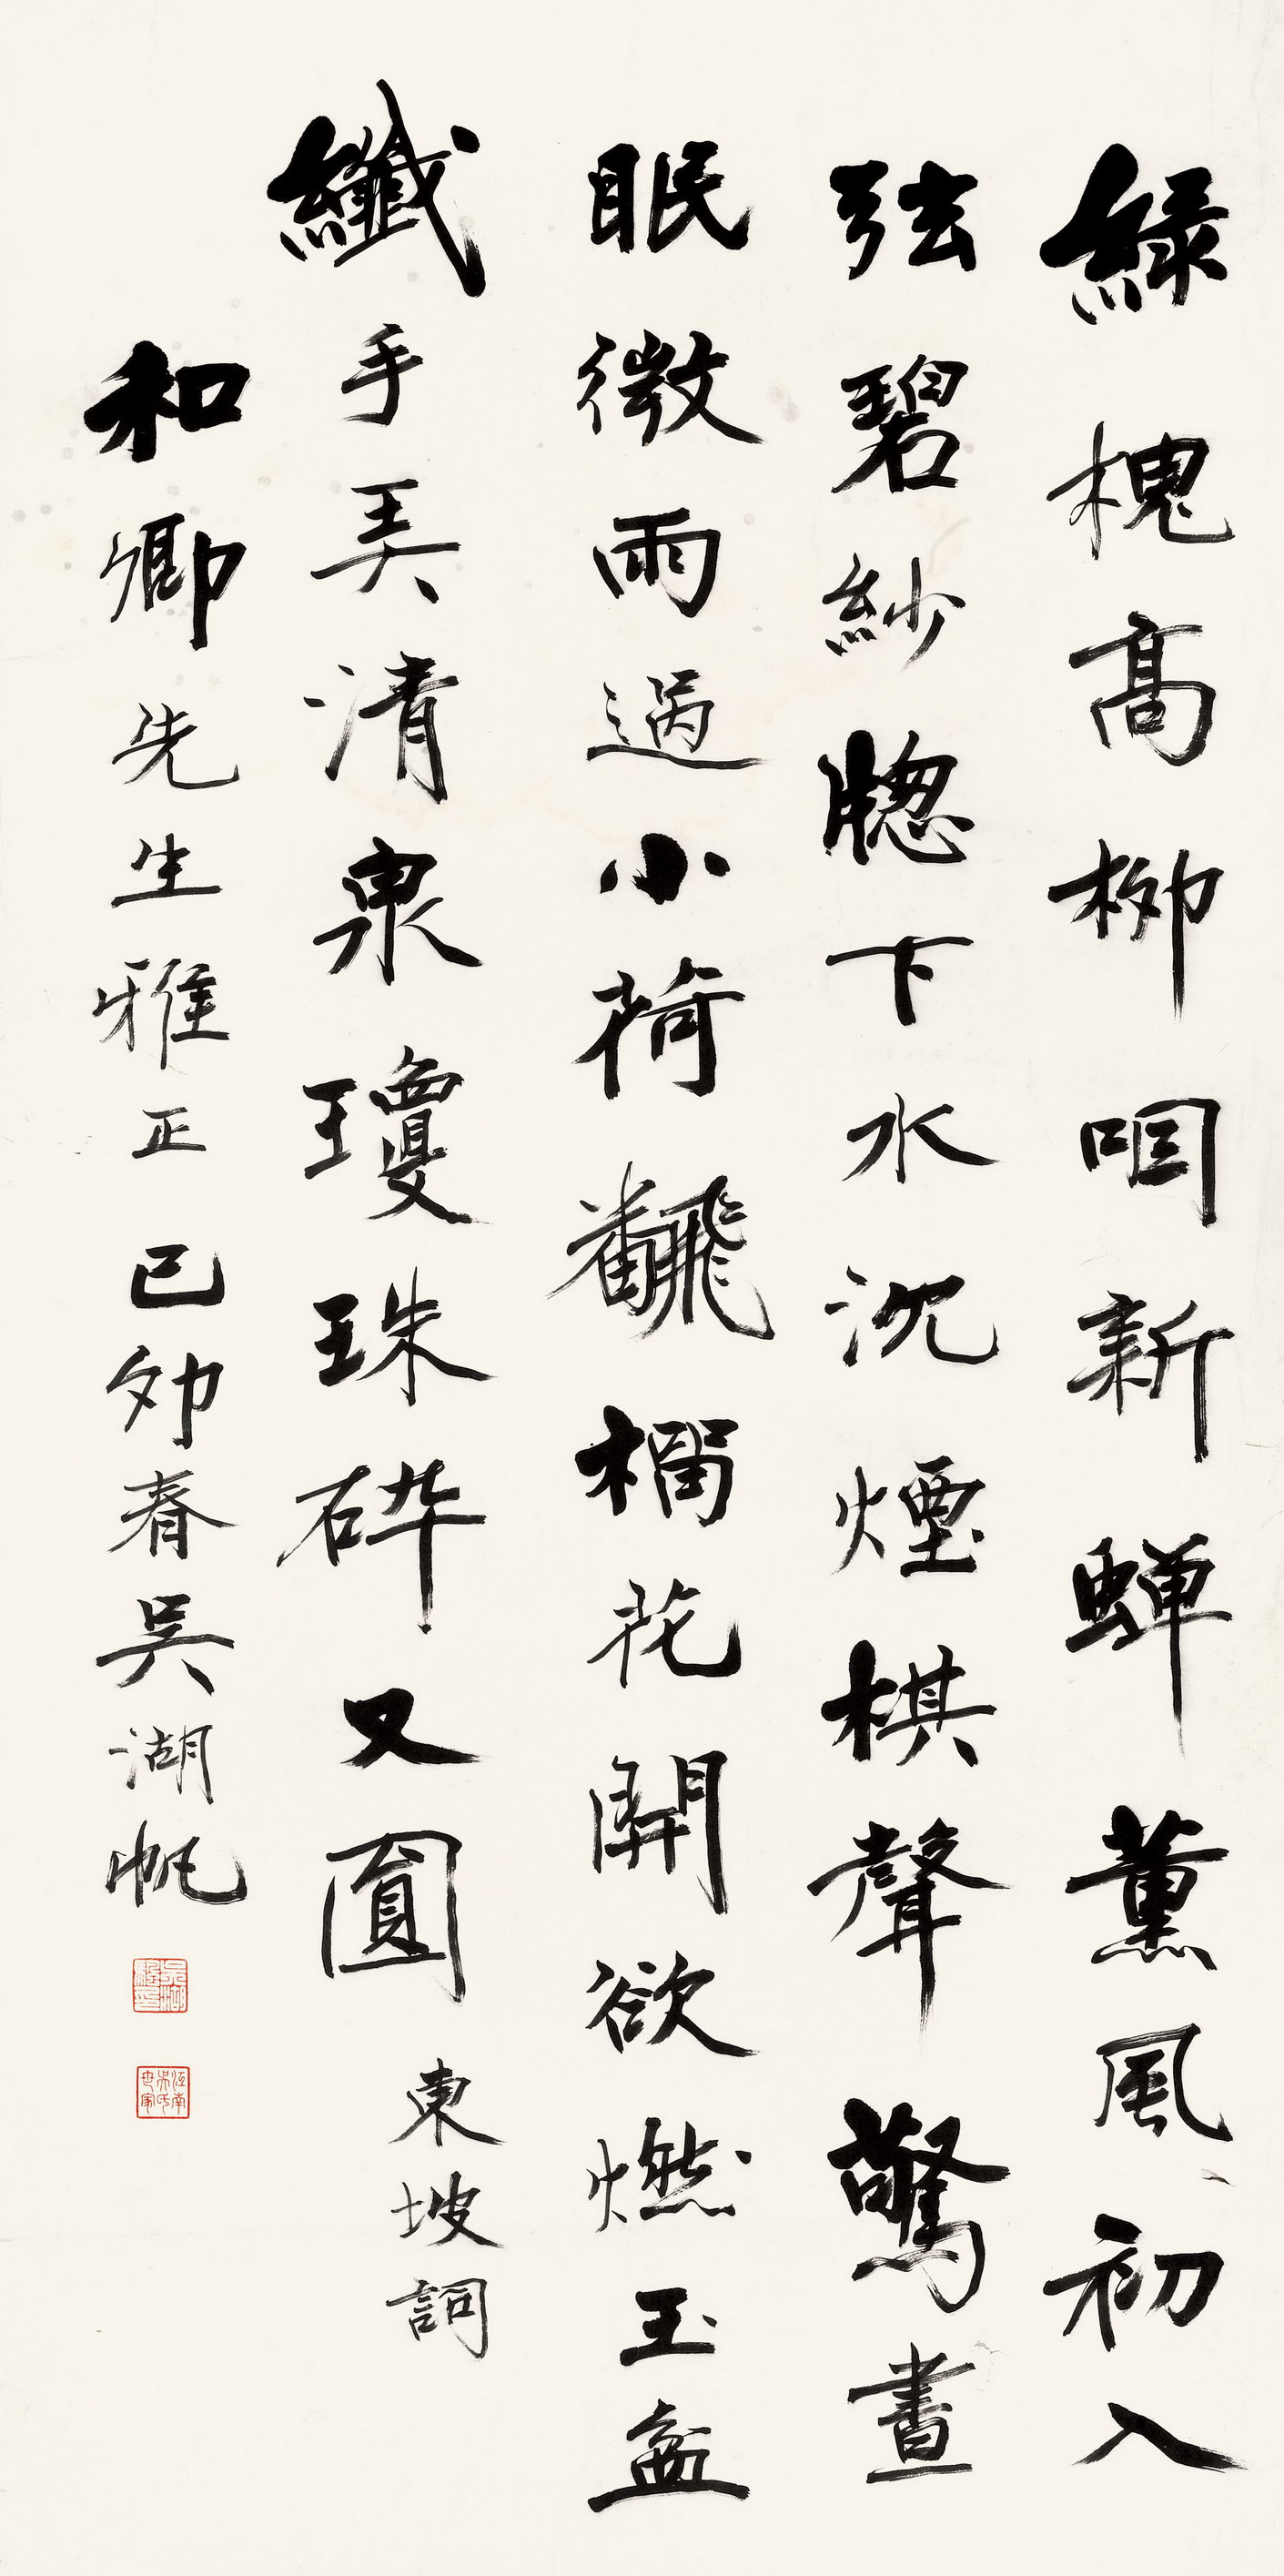 綠槐高柳咽新蟬薰風初入
弦碧紗牕下水沉煙棋聲驚晝
眠微雨過小荷飜榴花開欲燃玉盆
纖手弄清泉瓊珠碎又圓
東坡詞
和卿先生雅正己卯春吳湖帆
江南吳氏世家